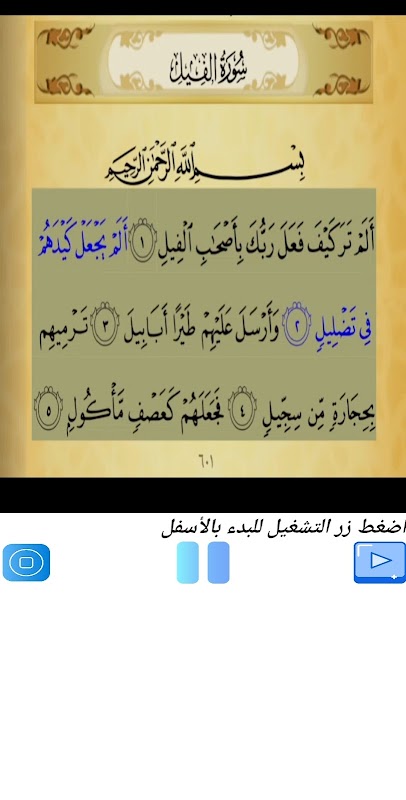 سُورَةُ الفِيلِ
بِسْمِ اللَّهِ الرَّحْمَٰنِ الرَّحِيمِ
أَلَمْ تَرَ كَيْفَ فَعَلَ رَبُّكَ بِأَصْحَٰبِ الْفِيلِ ١ أَلَمْ يَجْعَلْ كَيْدَهُمْ
فِي تَضْلِيلٍ ٢ وَأَرْسَلَ عَلَيْهِمْ طَيْرًا أَبَابِيلَ ٣ تَرْمِيهِم
بِحِجَارَةٍ مِّن سِجِّيلٍ ٤ فَجَعَلَهُمْ كَعَصْفٍ مَّأْكُولٍ ٥
٦٠١
اضغط زر التشغيل للبدء بالأسفل